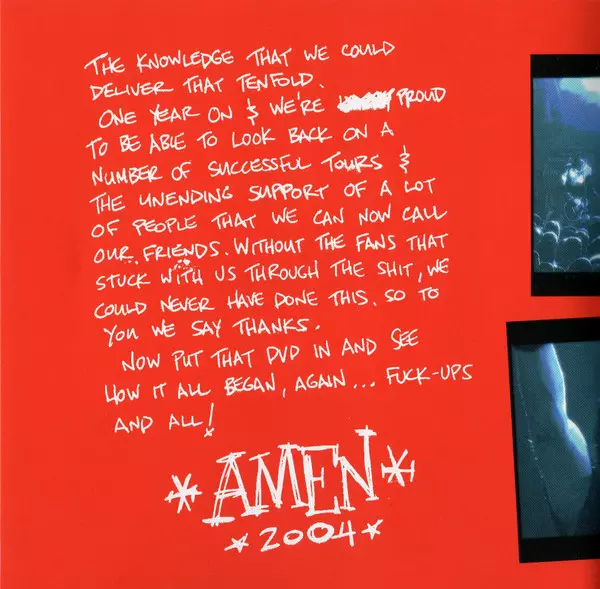 THE KNOWLEDGE THAT WE COULD
DELIVER THAT TENFOLD.
ONE YEAR ON & WE'RE PROUD
TO BE ABLE TO LOOK BACK ON A
NUMBER OF SUCCESSFUL TOURS &
THE UNENDING SUPPORT OF A LOT
OF PEOPLE THAT WE CAN NOW CALL
OUR FRIENDS. WITHOUT THE FANS THAT
STUCK WITH US THROUGH THE SHIT, WE
COULD NEVER HAVE DONE THIS. SO TO
YOU WE SAY THANKS.
NOW PUT THAT DVD IN AND SEE
HOW IT ALL BEGAN, AGAIN... FUCK-UPS
AND ALL!
*AMEN*
*2004*